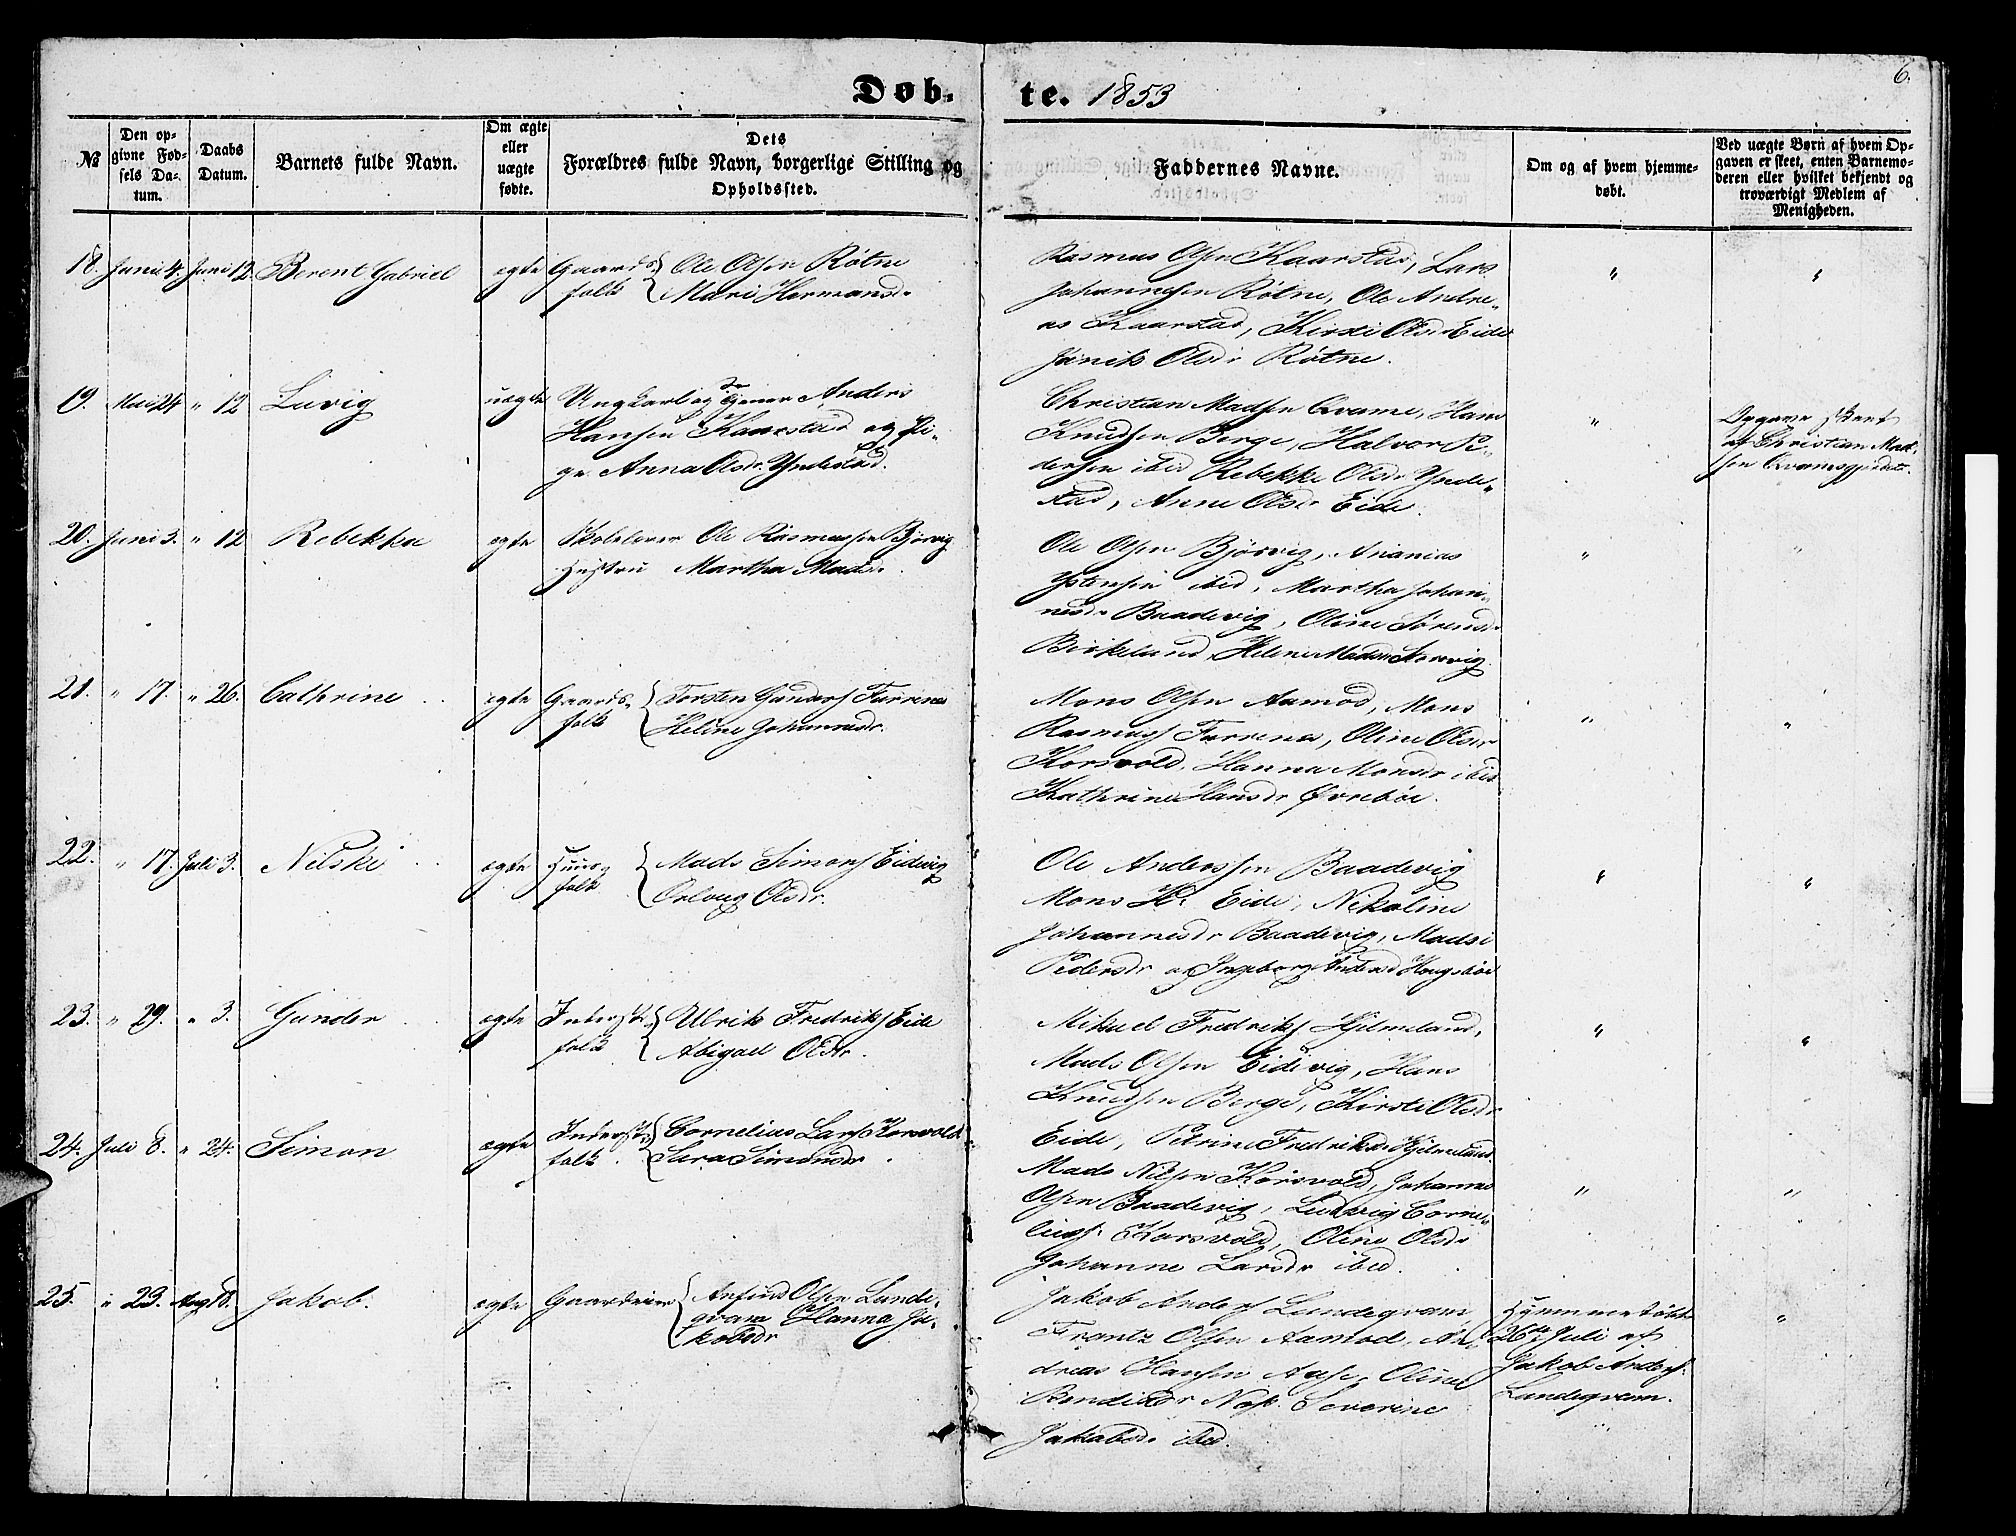 Døb-te. 1853
6.
№
Den op-
givne Fød-
sels Da-
tum.
Daabs
Datum.
Barnets fulde Navn.
Om ægte
eller
uægte
fødte.
Dets
Forældres fulde Navn, borgerlige Stilling og
Opholdssted.
Faddernes Navne.
Om og af hvem hjemme-
døbt.
Ved uægte Børn af hvem Op-
gaven er skeet, enten Barnemo-
deren eller hvilket bekjendt og
troværdigt Medlem af
Menigheden.
18. Juni 4. Juni 12. Berent Gabriel ægte Gaards- Ole Olsen Røtne
folk Mari Hermansdr
Rasmus Olsen Kaarstad, Lars
Johannesen Røtne, Ole Andre-
as Kaarstad, Kirsti Olsdr Eide
Janik Olsdr Røtne.
19. Mai 24 " 12 Luvig uægte Ungkarl og Anders
Hansen Kaarstad og Pi-
ge Anna Olsdr. Yndestad.
Christian Madsen Qvame, Hans
Knudsen Berge, Halvor Pe-
dersen ibid Rebekke Olsdr Ynde-
stad, Anne Olsdr Eide.
Opgave skeet
af Christian Mad-
sen
20. Juni 3. " 12 Rebekka ægte Skolelærer Ole Rasmussen Bjørvig
Hustru Martha Madsdr.
Ole Olsen Bjørvig, Ananias
ibid, Martha Johan-
nesdr Baadevig, Oline Sørensdr
Birkeland, Helene Madsdr
21. " 17. " 26. Cathrine ægte Gaards- Torsten Gunders Furrenes
folk Heline Johannesdr.
Mons Olsen Aamod, Mons
Rasmuss Furrenes, Oline Olsdr
Korsvold, Hanna Monsdr ibid
Kathrine Hansdr Øvrebøe.
22. " 17. Juli 3. Nilski ægte Huus- Mads Simons Eidevig
folk Olsdr.
Ole Anderssen Baadevig
Mons H. Eide, Nikoline
Johannesdr Baadevig, Madsi
Pedersdr og Ingeborg Andersd Haugsbøe
23. " 29. " 3. Gunder ægte Inderst- Ulrik Fredriks Eide
folk Abigael Olsdr.
Mikael Fredriks Hjelmeland,
Mads Olsen Eidevig, Hans
Knudsen Berge, Kirsti Olsdr
Eide, Petrine Fredriksd Hjelmeland.
24. Juli 8. " 24. Simon ægte Inderst- Cornelius Lars Korsvold
folk. Sara Simonsdr.
Mads Nilsen Korsvold, Johannes
Olsen Baadevig, Ludvig Corne-
lius. Korsvold, Oline Olsdr
Johanne Larsdr ibid.
25. " 23. Aug 8. Jakob. ægte Gaardeier Anfind Olsen Lande-
qvam Hanna Ja-
kobsdr
Jakob Anders Landeqvam,
Frantz Olsen Aamod, An-
dreas Hansen Aase, Oline
Bendixdr Nes. Severine
Jakobsdr ibid.
Hjemmedøbt
26de Juli af
Jakob Anders.
Landeqvam.